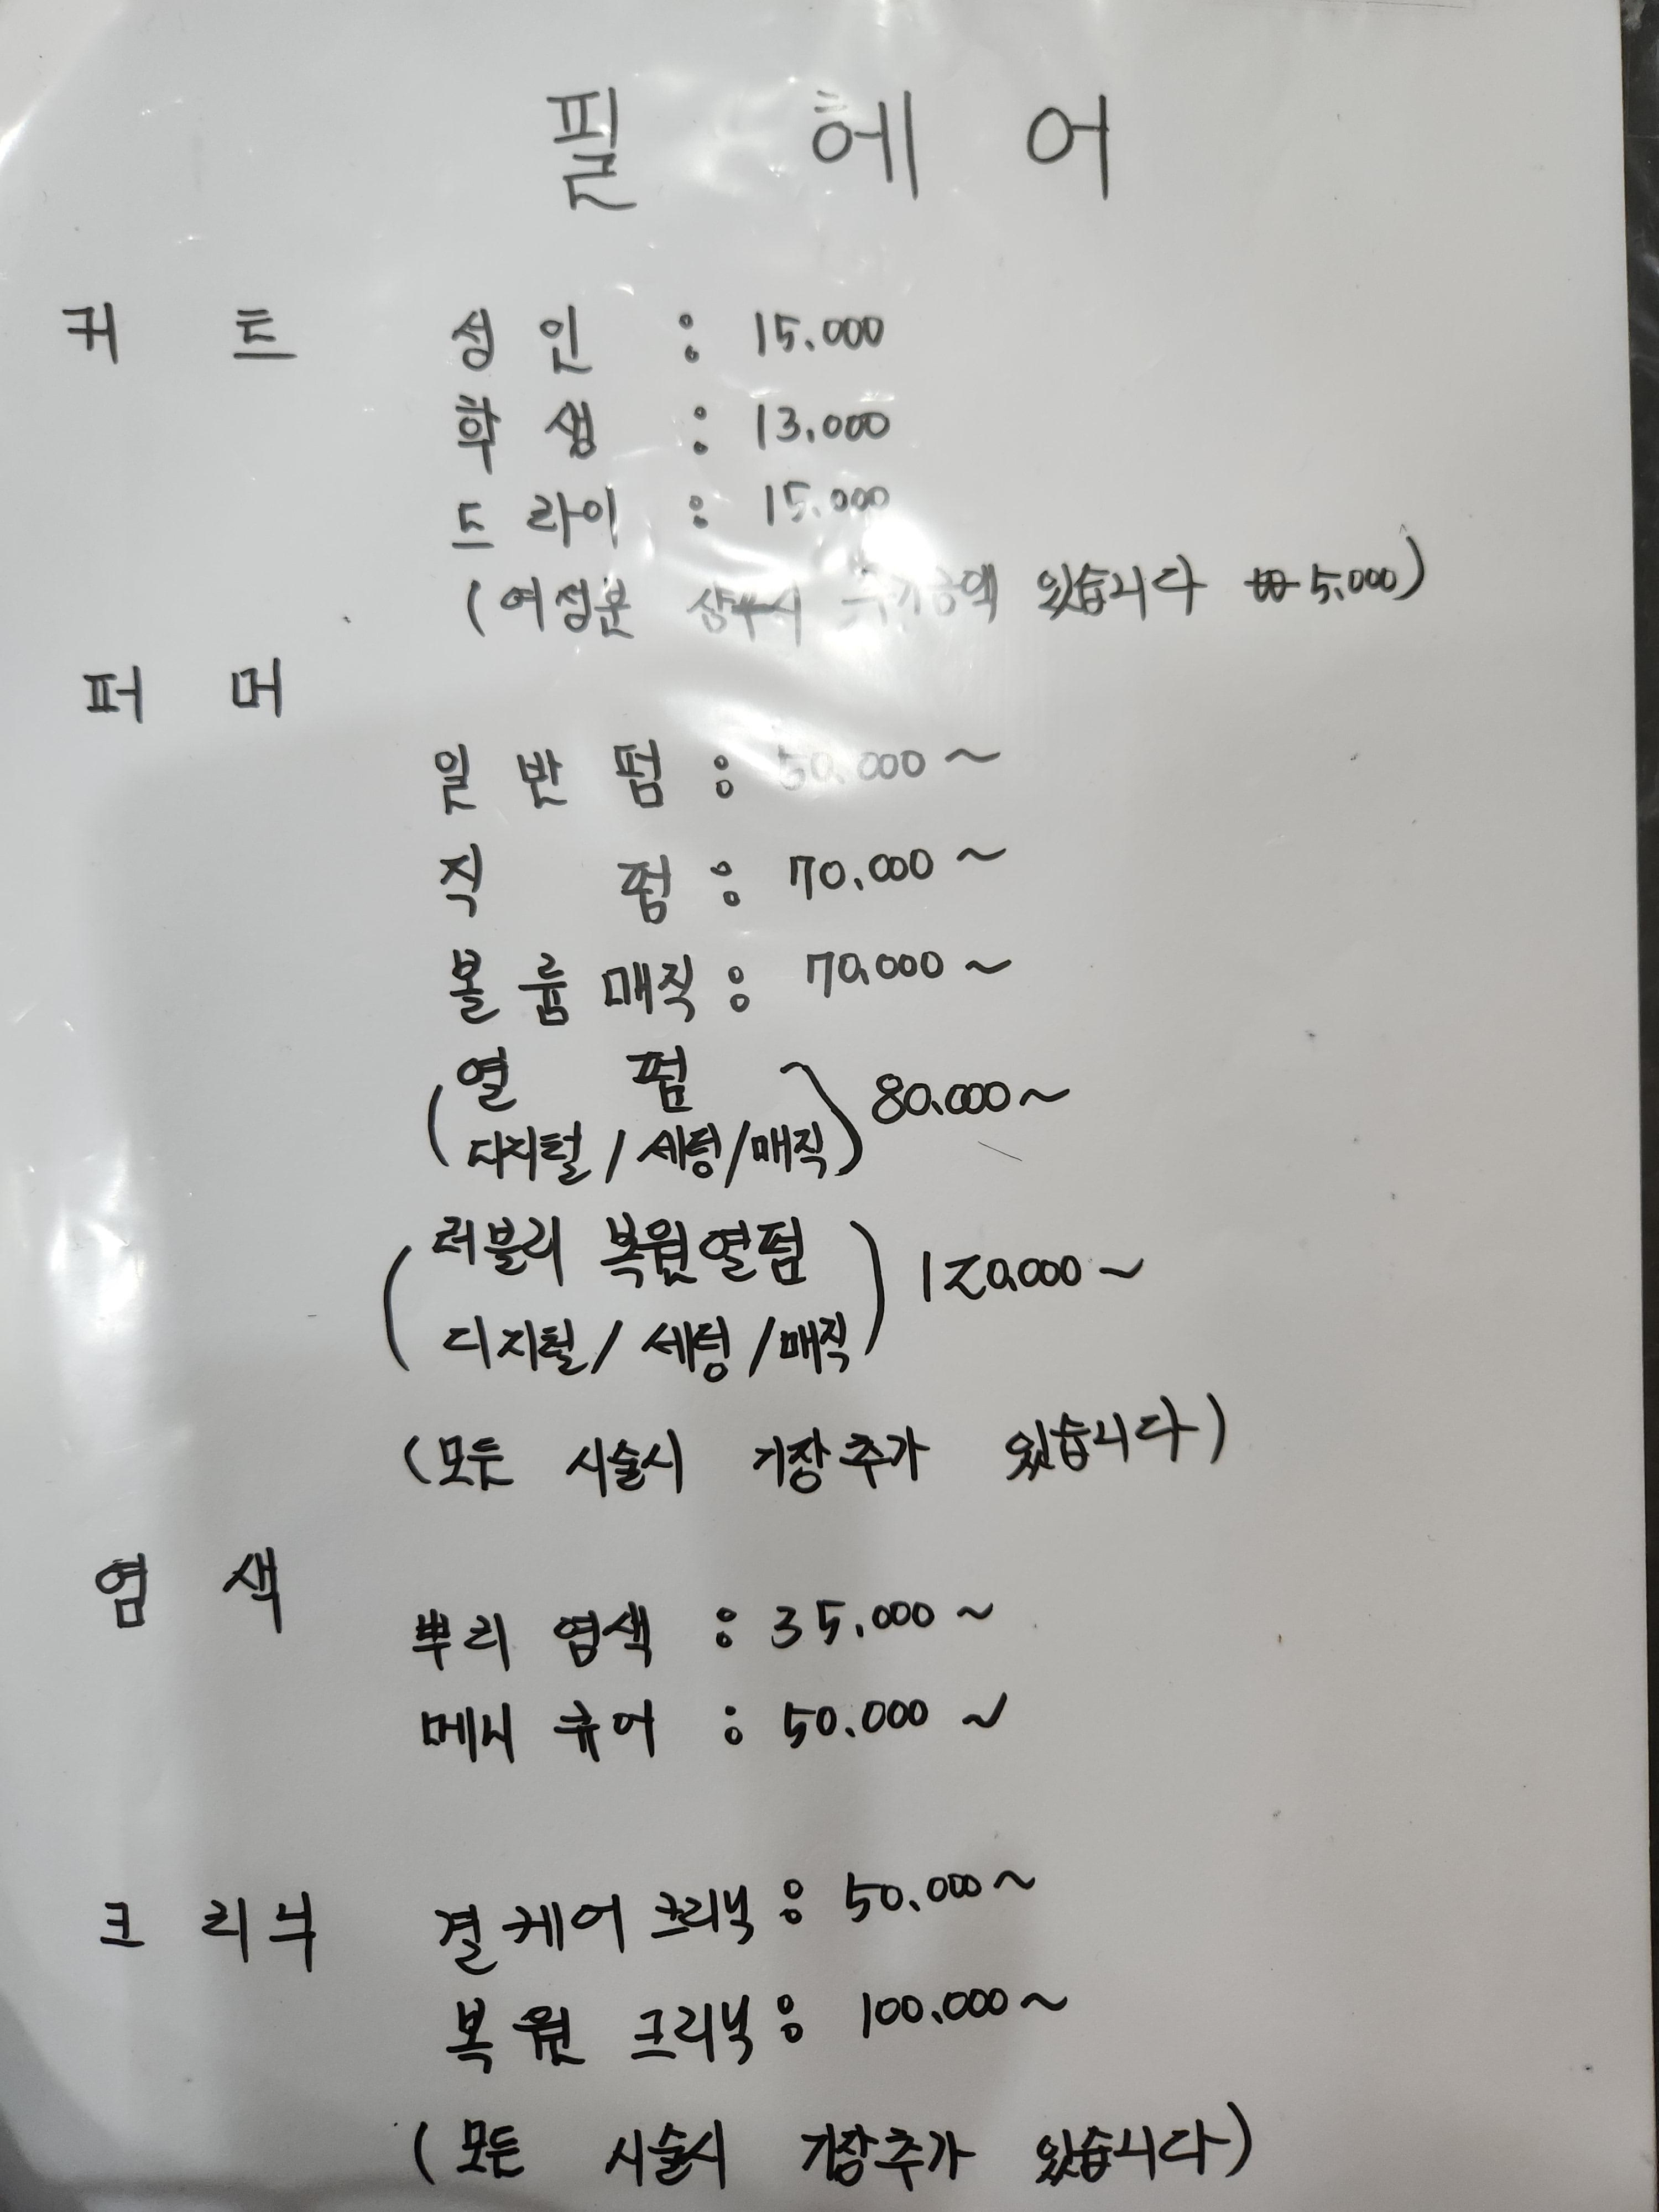 필 헤 어
커 트 성 인 : 15.000
학 생 : 13.000
드 라이 : 15.000
(여성분 샴푸시 추가금액 있습니다 ₩ 5.000)
퍼 머
일 반 펌 : 50.000 ~
직 펌 : 70.000 ~
볼 륨 매직 : 70.000 ~
(열 펌
디지털 / 세팅 / 매직) 80.000 ~
(러블리 복원열펌
디지털 / 세팅 / 매직) 120.000 ~
(모든 시술시 기장추가 있습니다)
염 색
뿌리 염색 : 35.000 ~
메니 큐어 : 50.000 ~
크 리 닉 결케어 크리닉 : 50.000 ~
복 원 크리닉 : 100.000 ~
(모든 시술시 기장추가 있습니다)